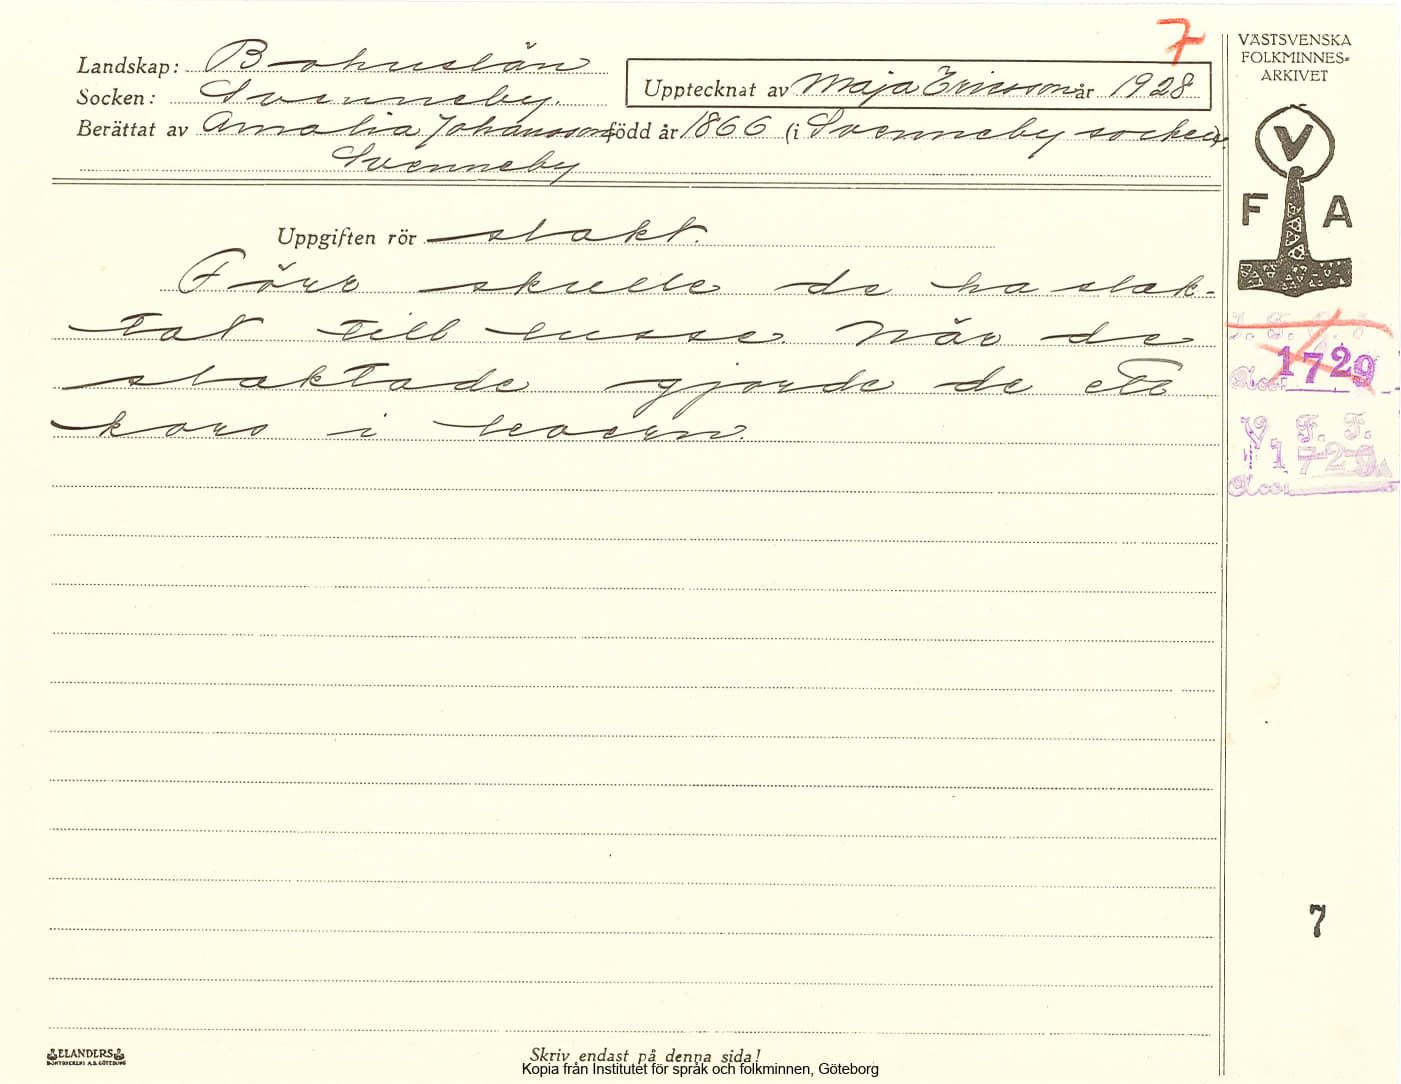 7
Landskap: Bohuslän
Socken: Svenneby.
Upptecknat av Maja Ericsson år 1928
Berättat av Amalia Johansson född år 1866 (i Svenneby socken).
Svenneby
VÄSTSVENSKA
FOLKMINNES-
ARKIVET
V
F A
Uppgiften rör slakt.
Förr skulle de ha slak-
tat till lusse. När de
slaktade gjorde de ett
kors i
1729
Acc.
V. F. F.
1729
Acc.
7
ELANDERS
Skriv endast på denna sida!
Kopia från Institutet för språk och folkminnen, Göteborg